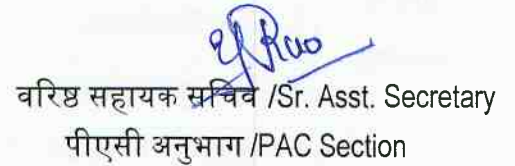 वरिष्ठ सहायक सचिव /Sr. Asst. Secretary
पीएसी अनुभाग /PAC Section